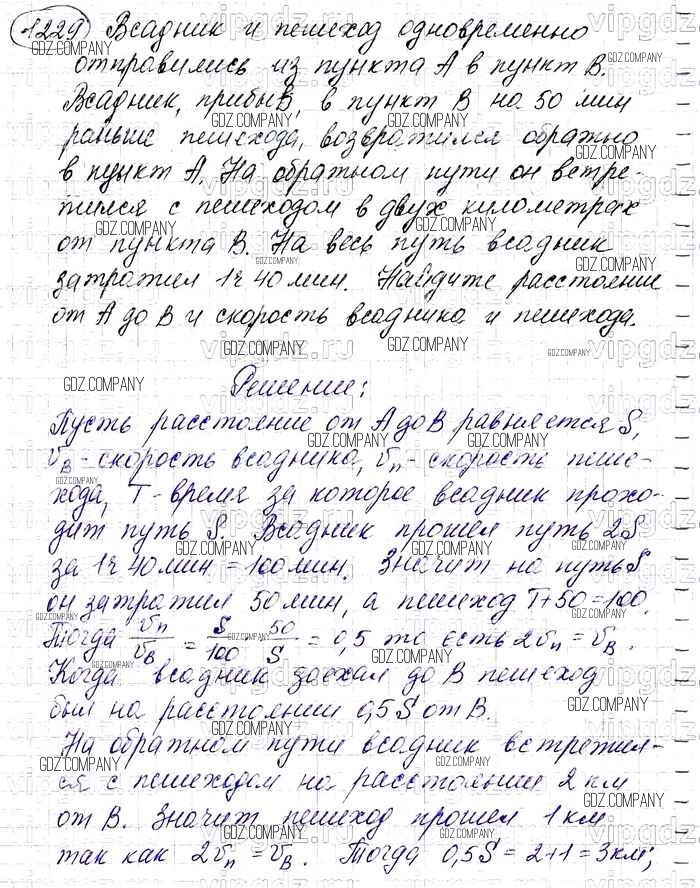 1229) Всадник и пешеход одновременно
отправились из пункта А в пункт В.
Всадник, прибыв, в пункт В на 50 мин
раньше пешехода, возвратился обратно
в пункт А. На обратном пути он встре-
тился с пешеходом в двух километрах
от пункта В. На весь путь всадник
затратил 1ч 40 мин. Найдите расстояние
от А до В и скорость всадника и пешехода.
Решение:
Пусть расстояние от А до В равняется S,
υв - скорость всадника, υп - скорость пеше-
хода, Т - время за которое всадник прохо-
дит путь S. Всадник прошел путь 2S
за 1ч 40 мин = 100 мин. Значит на путь S
он затратил 50 мин, а пешеход Т+50 = 100.
Тогда υп/υв = S/100 50/S = 0,5 то есть 2υп = υв.
Когда всадник доехал до В пешеход
был на расстоянии 0,5 S от В.
На обратном пути всадник встретил-
ся с пешеходом на расстоянии 2 км
от В. Значит пешеход прошел 1 км
так как 2υп = υв. Тогда 0,5 S = 2+1 = 3 км;
GDZ.COMPANY
vipgdz.ru